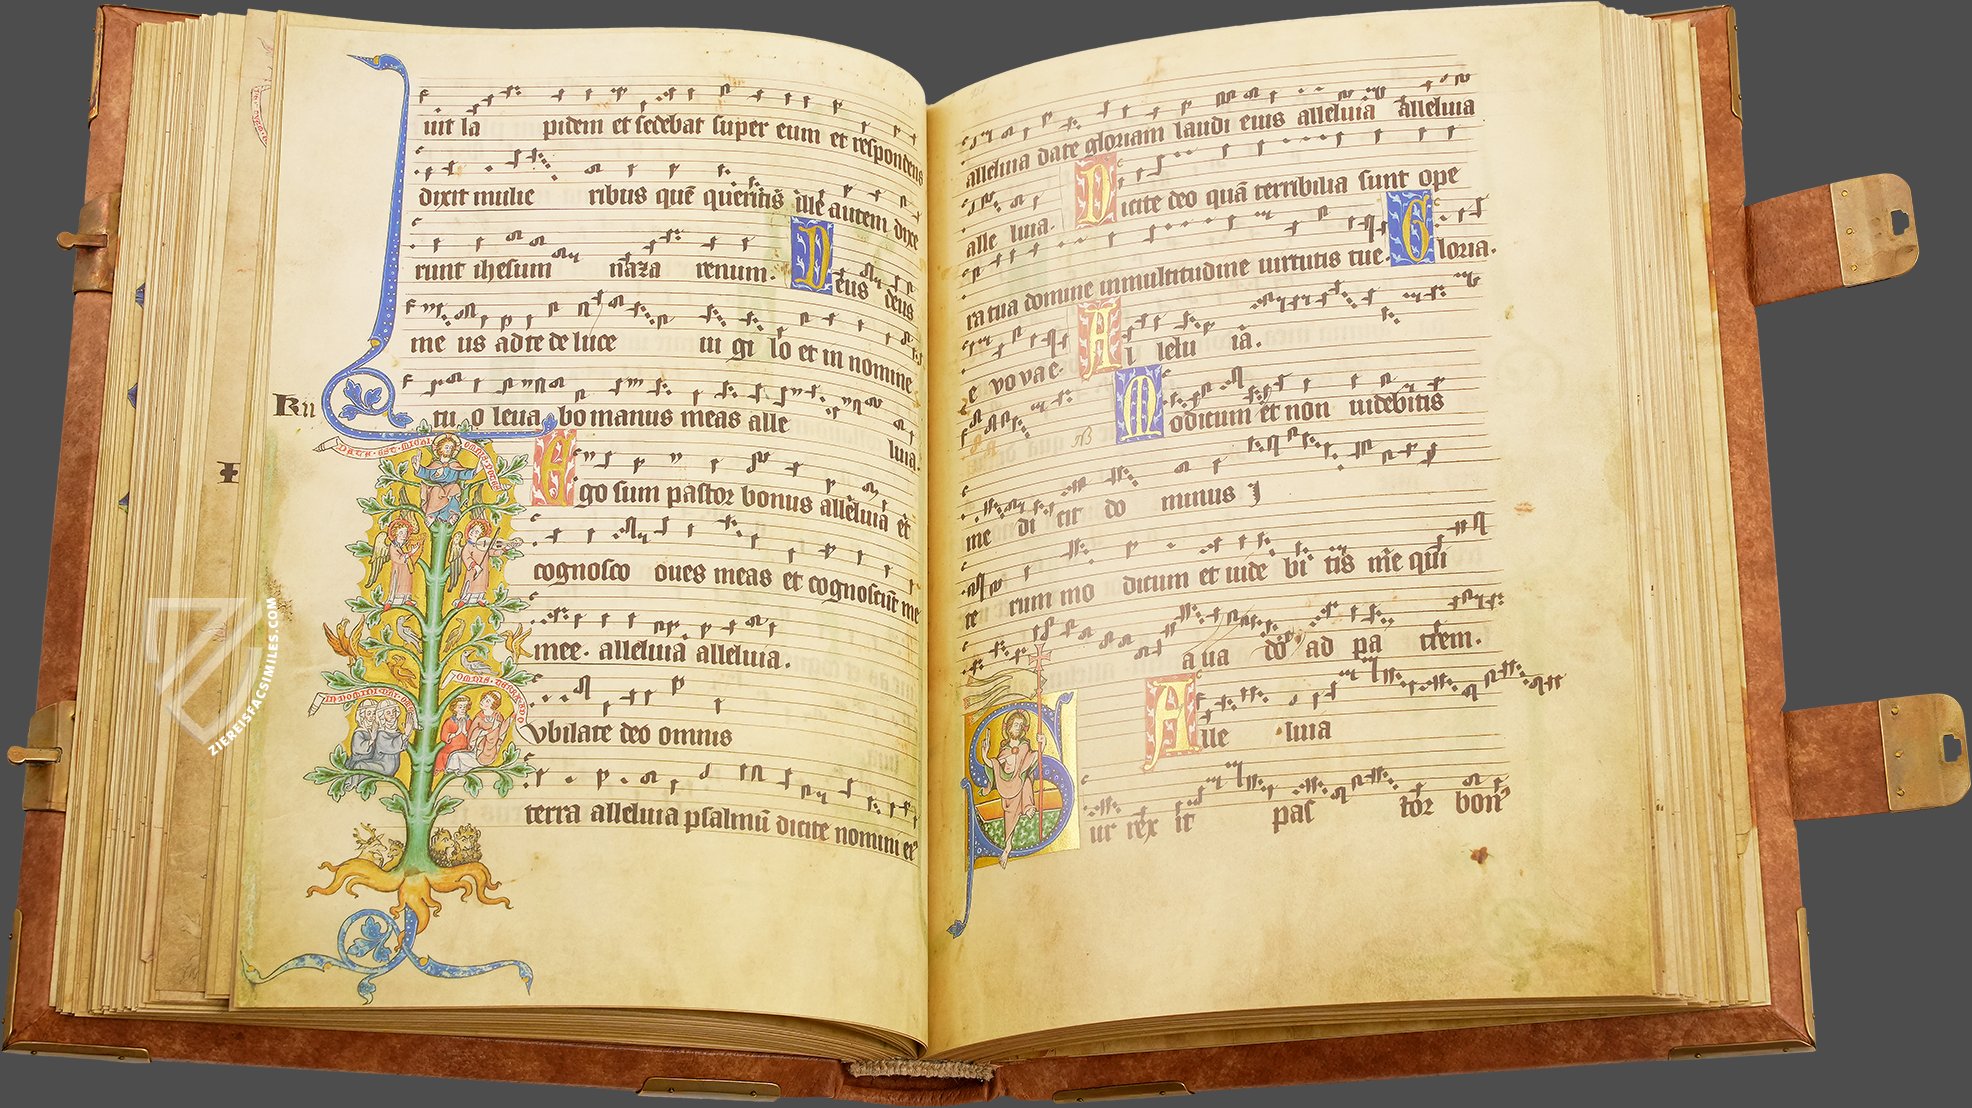 uit la pidem et sedebat super eum et respondens
dixit mulie ribus quē queritis ille autem dixe
runt ihesum naza renum. Deus deus
me us ad te de luce ui gi lo et in nomine
tuo leua bo manus meas alle
luia.
Ego sum pastor bonus alleluia et
cognosco oues meas et cognoscūt me
mee. alleluia alleluia.
vbilate deo omnis
terra alleluia psalmū dicite nomini eiꝰ
IN NOMINE
OMNIS TERRA
DATA EST MICHI OMNIS
alleluia date gloriam laudi eius alleluia alleluia
alle luia. Dicite deo quā terribilia sunt ope
ra tua domine in multitudine uirtutis tue. Gloria.
e vo va e. Al lelu ia.
Modicum et non uidebitis
me di cit do minus I
te rum mo dicum et uide bi tis me qui
a ua do ad pa trem.
Alle luia
Sur rex it pas tor bonꝰ
ZIEREISFACSIMILES.COM